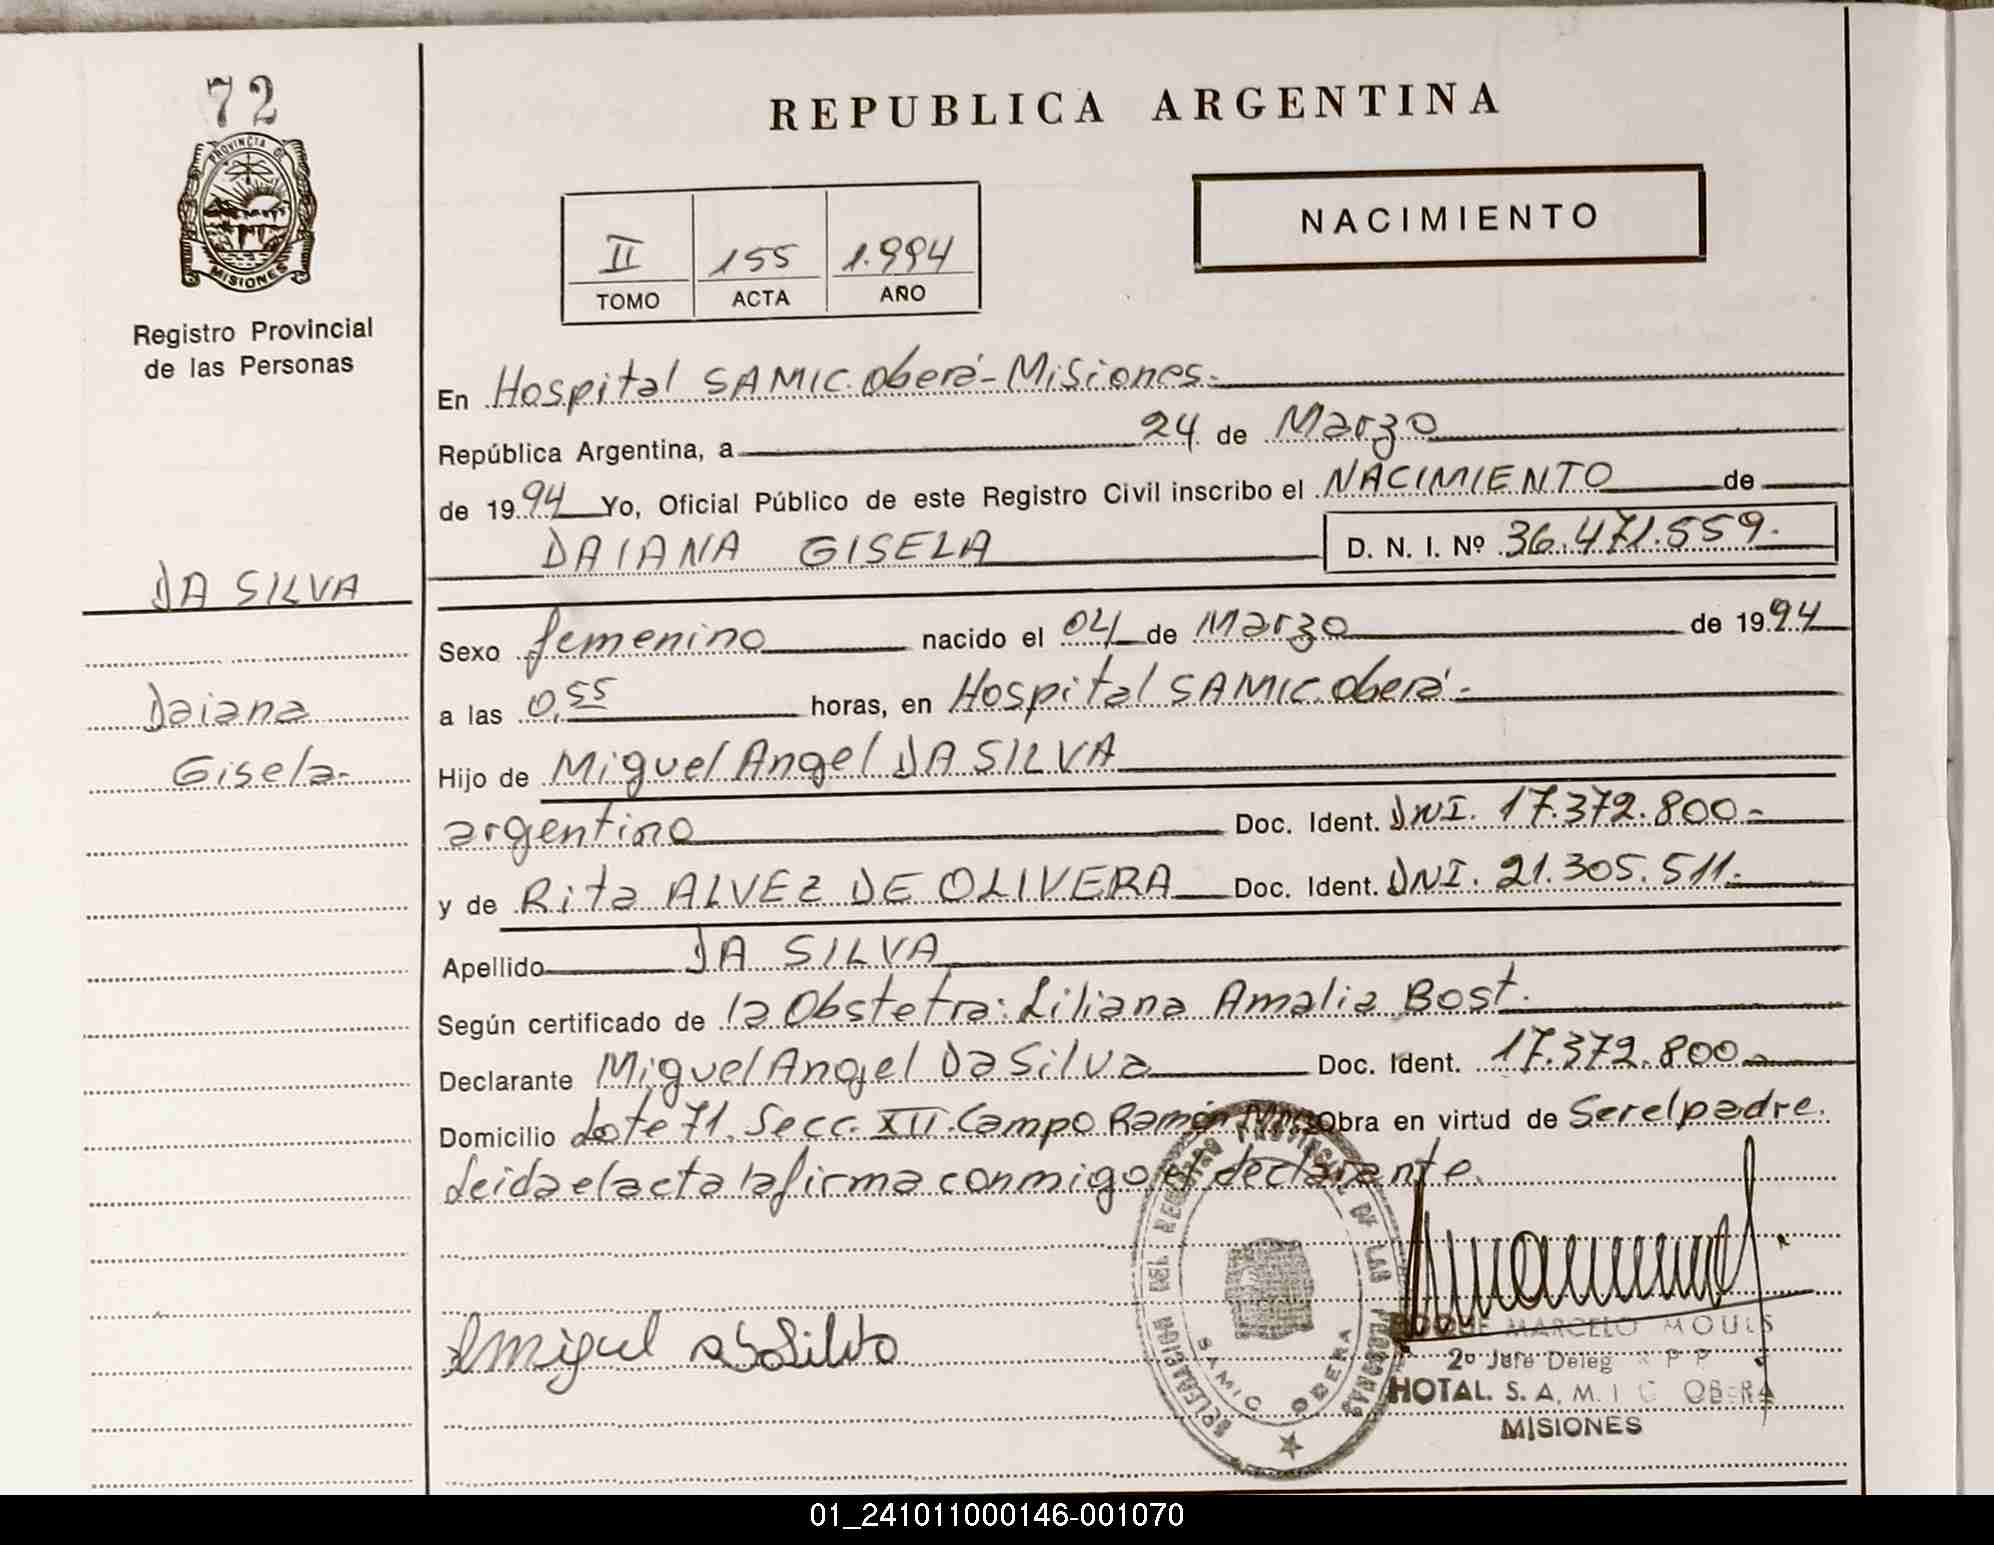 72
PROVINCIA DE
MISIONES
Registro Provincial
de las Personas
REPUBLICA ARGENTINA
NACIMIENTO
II 155 1.994
TOMO ACTA AÑO
En Hospital SAMIC. Oberá-Misiones.-
República Argentina, a 24 de Marzo
de 1994 Yo, Oficial Público de este Registro Civil inscribo el NACIMIENTO de
DAIANA GISELA D. N. I. Nº 36.471.559.-
DA SILVA
Daiana
Gisela.-
Sexo femenino nacido el 04 de Marzo de 1994
a las 0,55 horas, en Hospital SAMIC. Oberá.-
Hijo de Miguel Angel DA SILVA
argentino Doc. Ident. DNI. 17.372.800.-
y de Rita ALVEZ DE OLIVERA Doc. Ident. DNI. 21.305.511.-
Apellido DA SILVA
Según certificado de la Obstetra: Liliana Amalia Bost.
Declarante Miguel Angel Da Silva Doc. Ident. 17.372.800.-
Domicilio Lote 71. Secc. XII. Campo Ramón Obra en virtud de Ser el padre.
Leida el acta la firma conmigo el declarante.
DELEGACION DEL REGISTRO PROVINCIAL DE LAS PERSONAS
SAMIC OBERA
MARCELO MOULS
2º Jefe Deleg R P P
HOTAL. S. A. M. I C OBERA
MISIONES
01_241011000146-001070